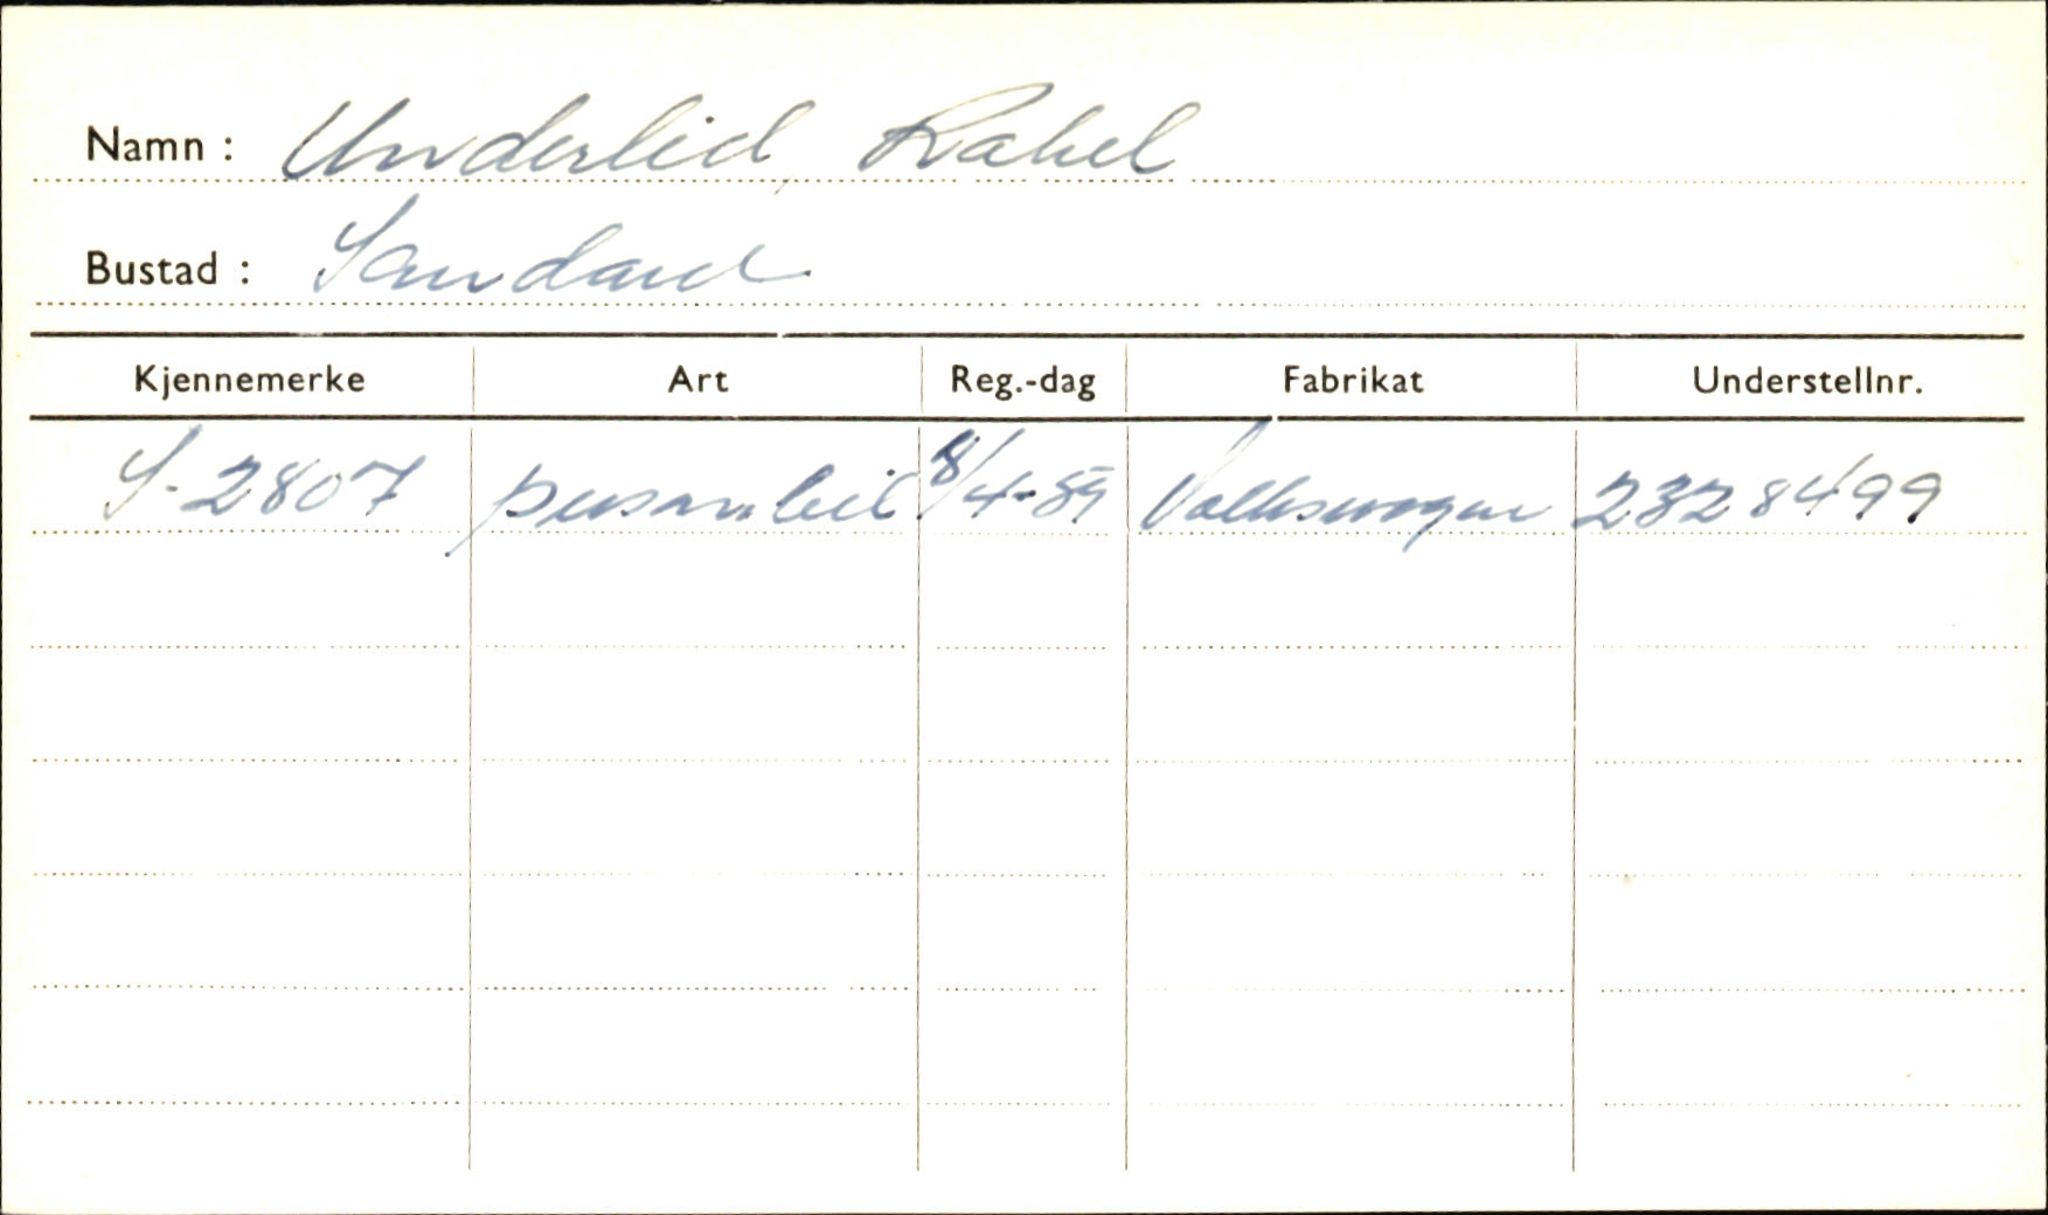 Namn : Underlid, Rakel
Bustad : Sandane
Kjennemerke Art Reg.-dag Fabrikat Understellnr.
S-2807 personbil 8/4-59 Volkswagen 2328499